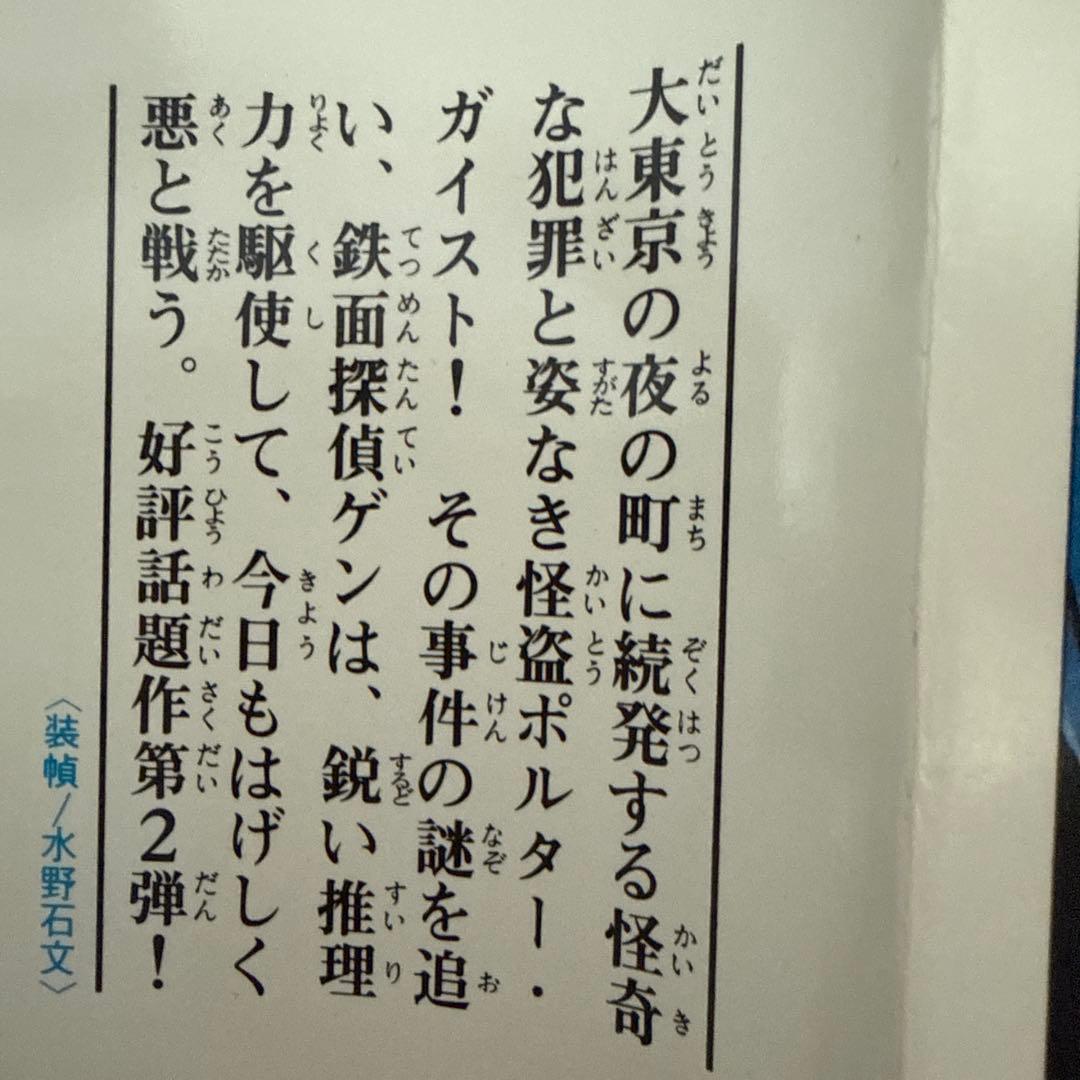 大東京の夜の町に続発する怪奇
な犯罪と姿なき怪盗ポルター・
ガイスト！　その事件の謎を追
い、鉄面探偵ゲンは、鋭い推理
力を駆使して、今日もはげしく
悪と戦う。好評話題作第2弾！
〈装幀/水野石文〉